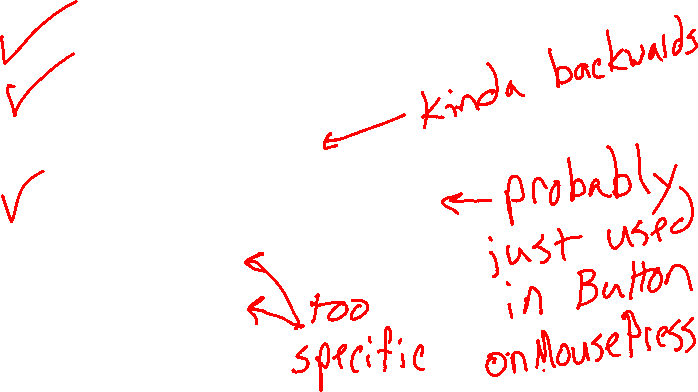 kinda backwards
probably
just used
in Button
onMousePress
too
specific